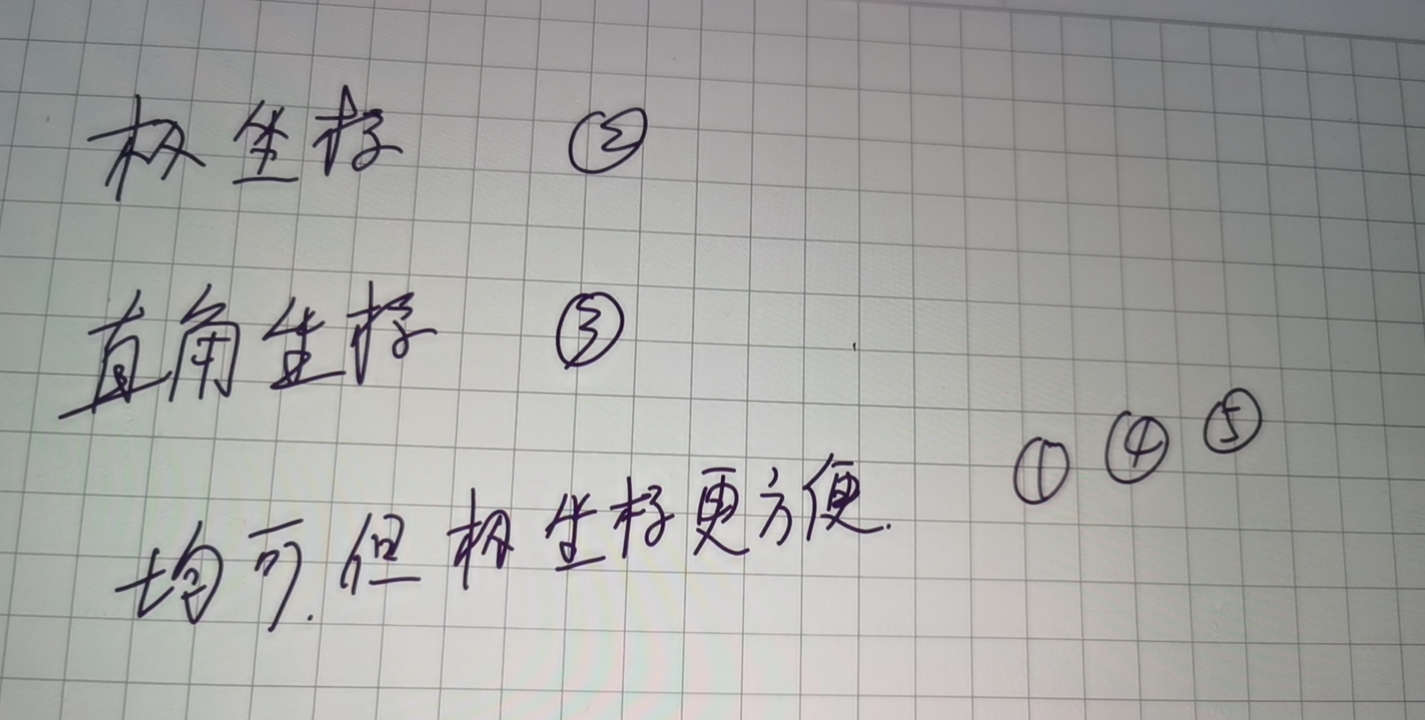 极坐标 ②
直角坐标 ③
均可.但极坐标更方便. ① ④ ⑤